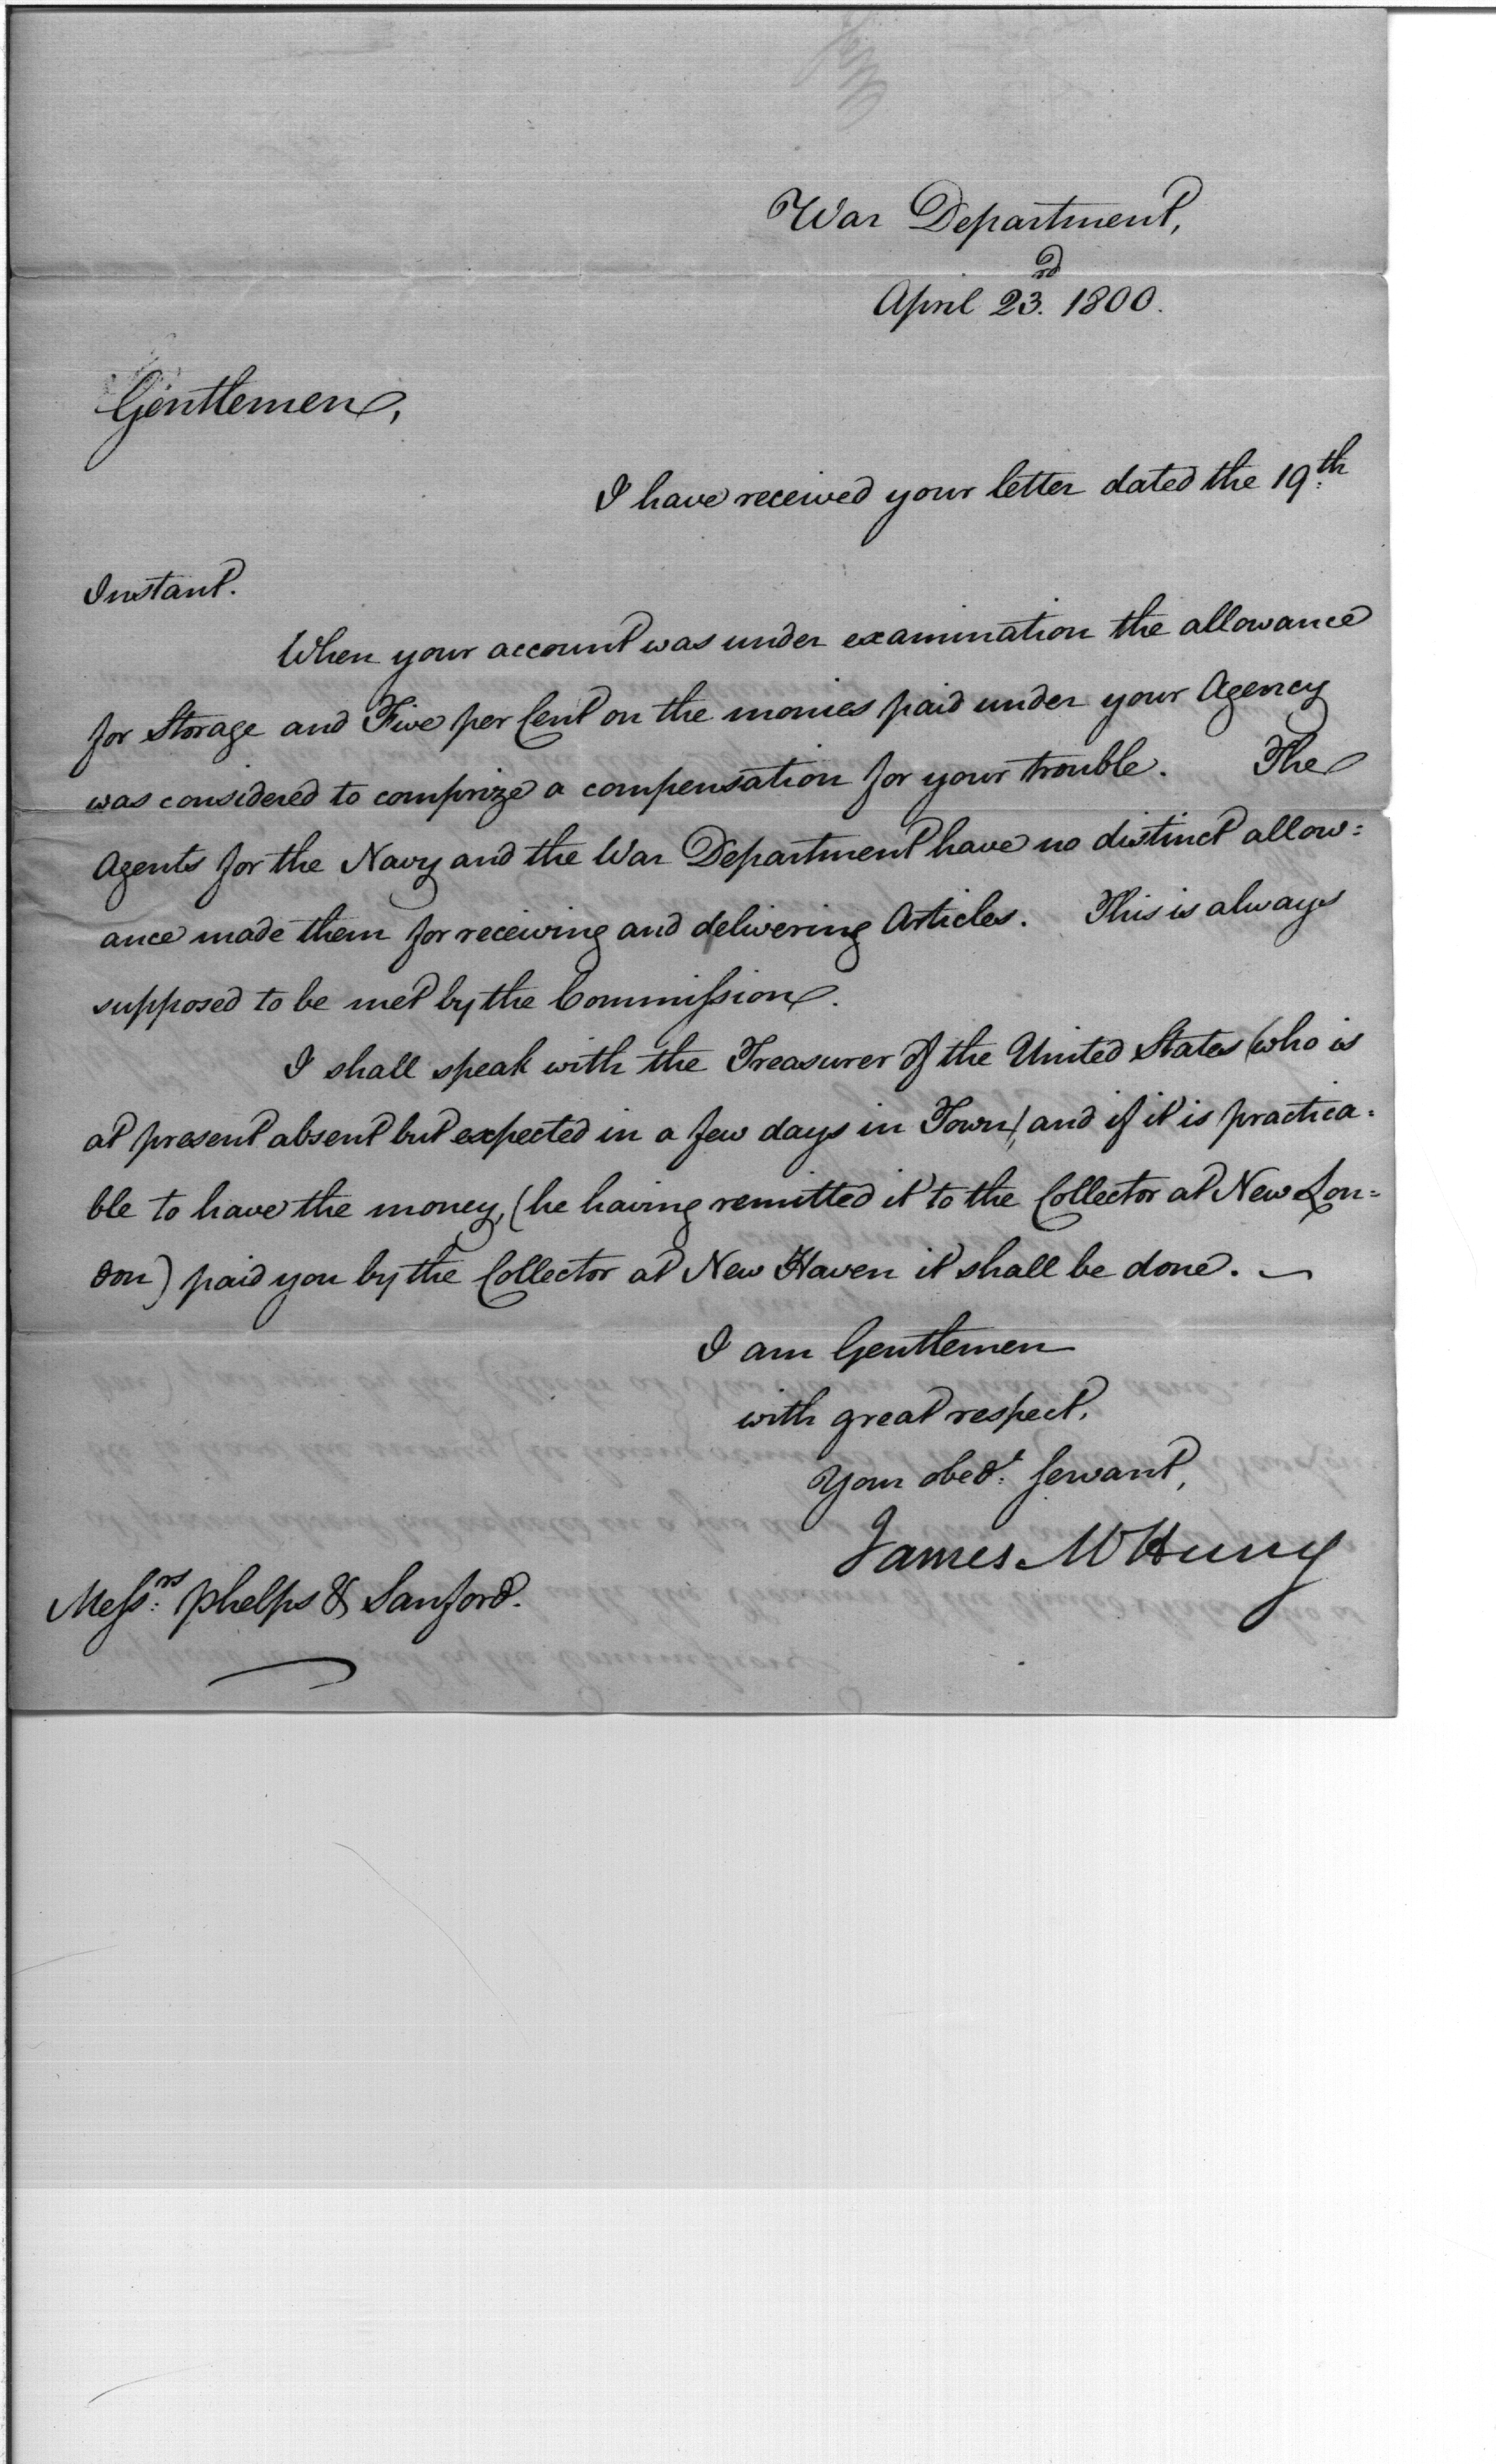 War Department,
April 23.rd 1800.
Gentlemen,
I have received your letter dated the 19.th
Instant.
When your account was under examination the allowance
for Storage and Five per Cent on the monies paid under your Agency
was considered to comprize a compensation for your trouble. The
Agents for the Navy and the War Department have no distinct allow=
ance made them for receiving and delivering Articles. This is always
supposed to be met by the Commission.
I shall speak with the Treasurer of the United States (who is
at present absent but expected in a few days in Town), and if it is practica=
ble to have the money, (he having remitted it to the Collector at New Lon=
don) paid you by the Collector at New Haven it shall be done. —
I am Gentlemen
with great respect,
Your obed.t Servant,
James McHenry
Mess.rs Phelps & Sanford.